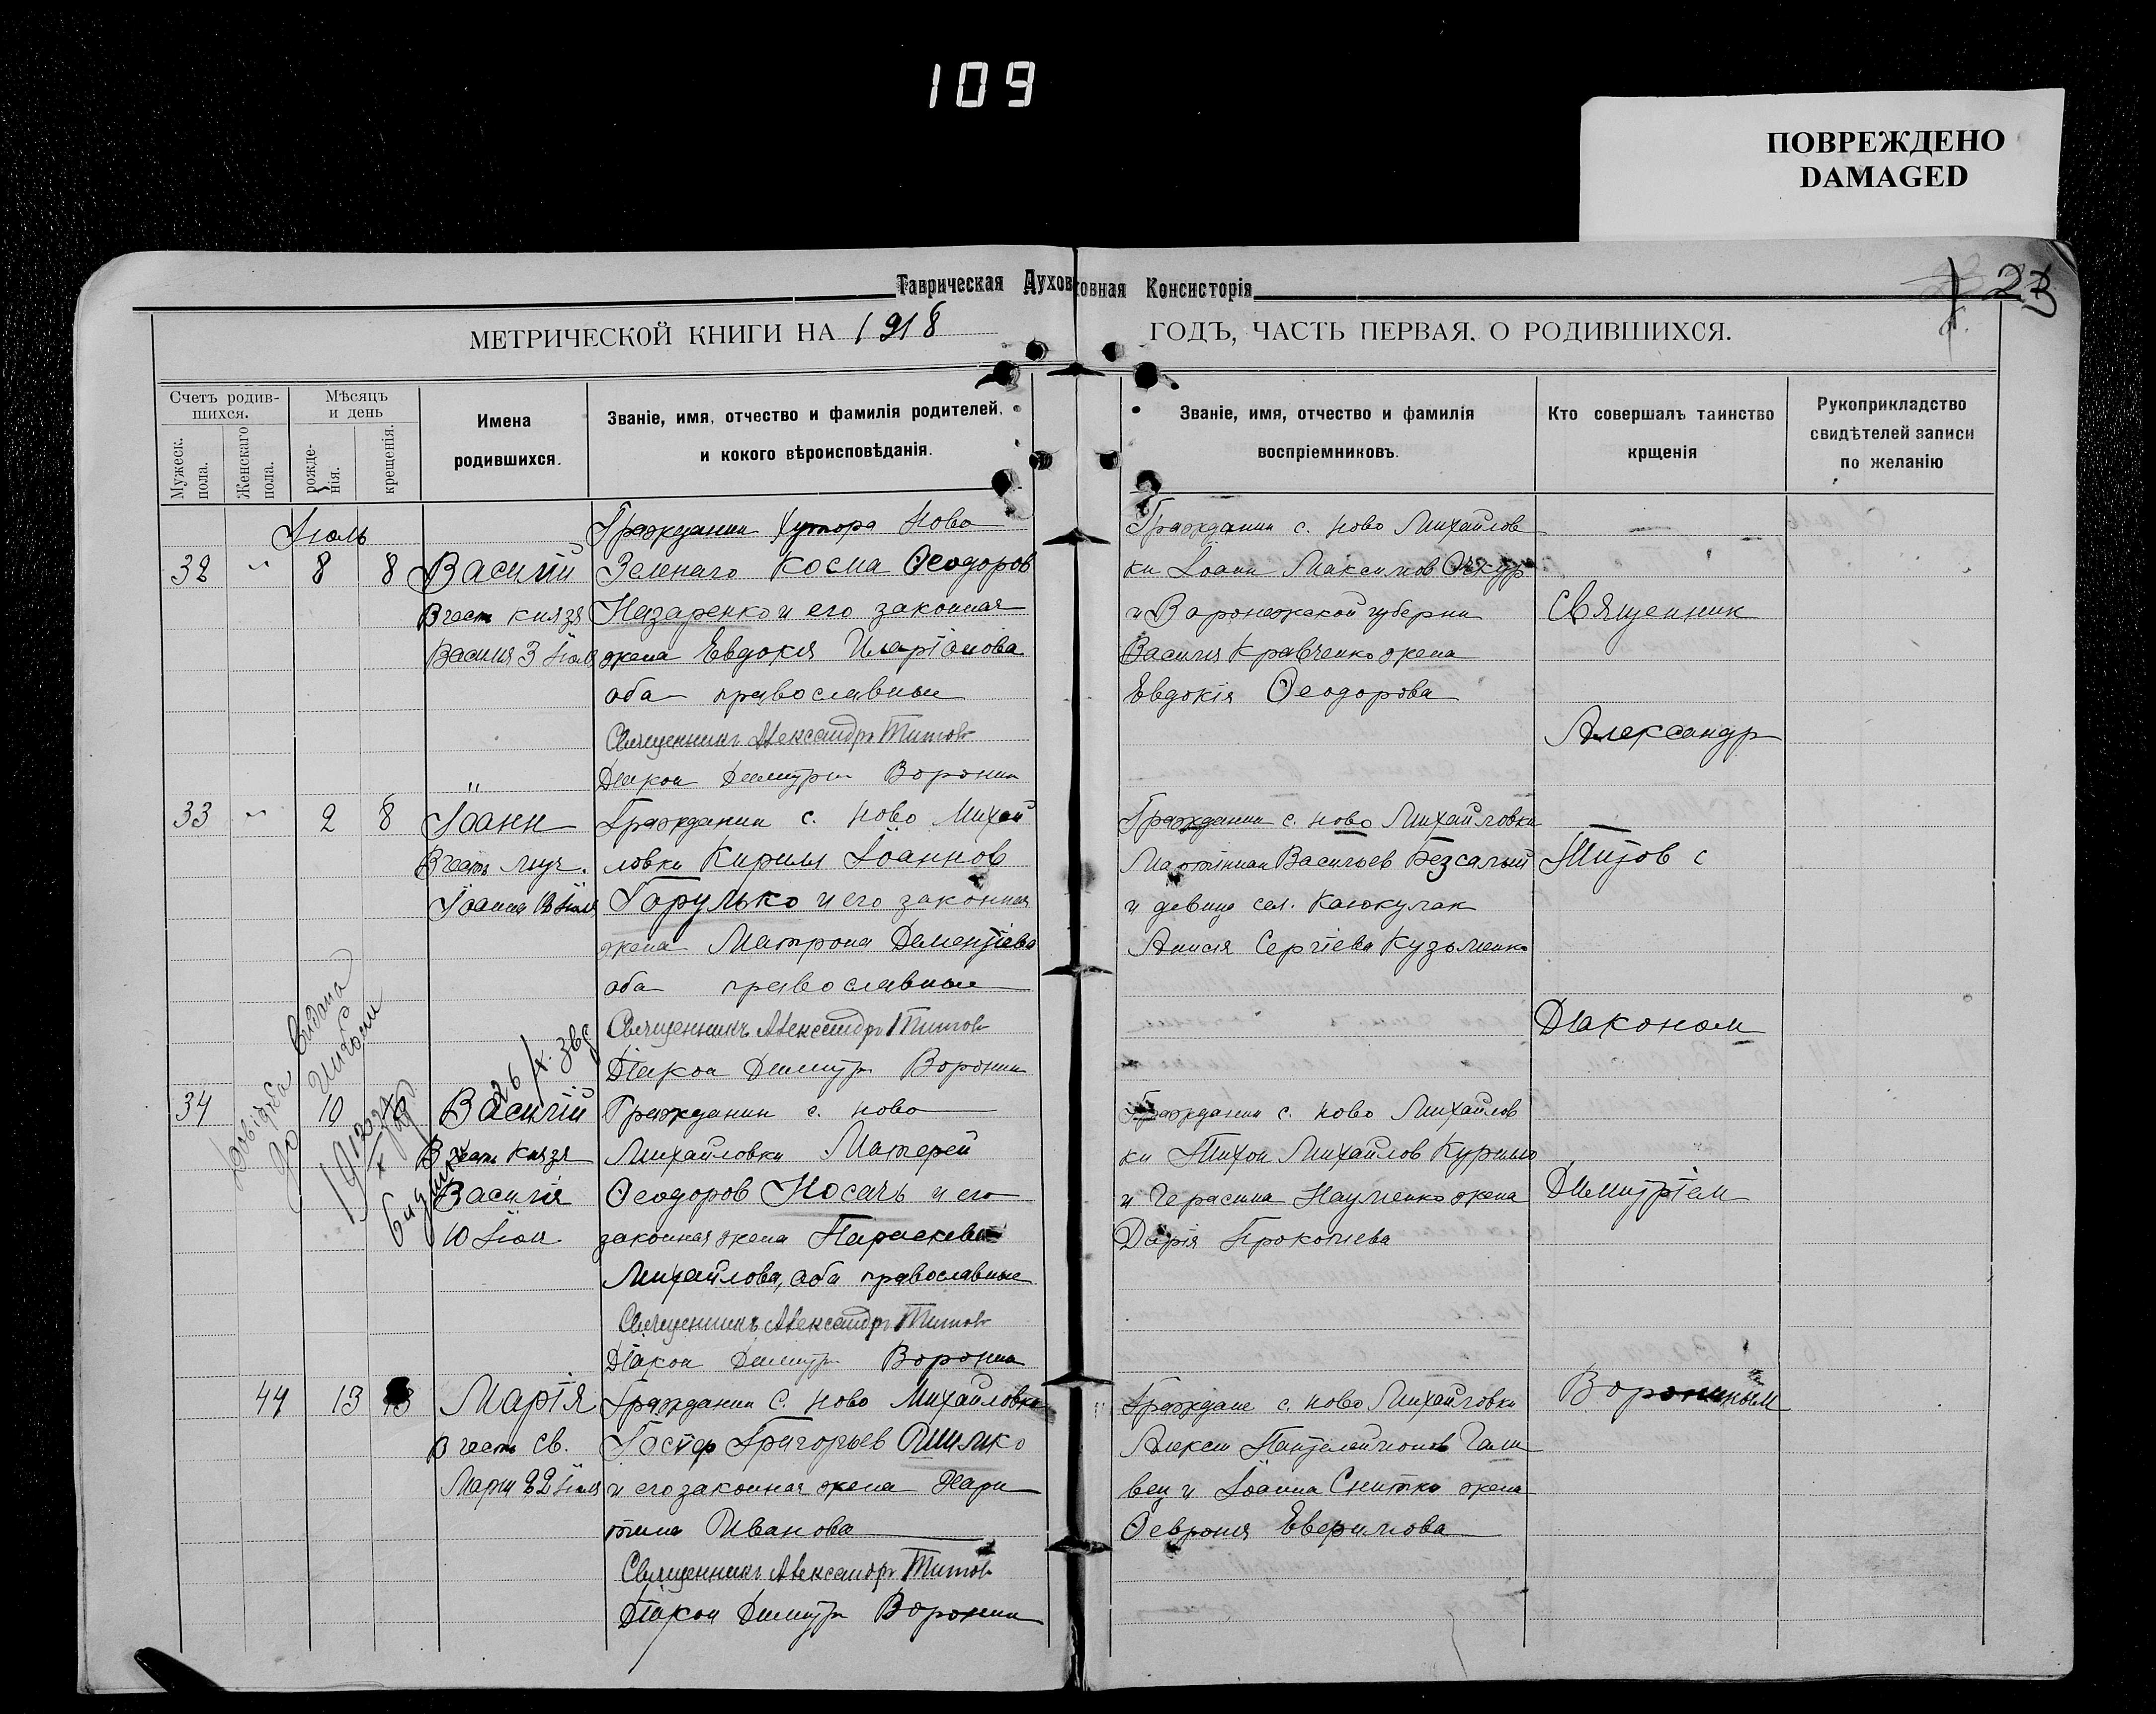 109
ПОВРЕЖДЕНО
DAMAGED
Таврическая Духовная Консисторія
МЕТРИЧЕСКОЙ КНИГИ НА 1918 ГОДЪ, ЧАСТЬ ПЕРВАЯ. О РОДИВШИХСЯ.
Счетъ родив-
шихся.
Мужеск.
пола.
Женскаго
пола.
Мѣсяцъ
и день
рожде-
нія.
крещенія.
Имена
родившихся.
Званіе, имя, отчество и фамилія родителей,
и кокого вѣроисповѣданія.
Званіе, имя, отчество и фамилія
воспріемниковъ.
Кто совершалъ таинство
крщенія
Рукоприкладство
свидѣтелей записи
по желанію
Іюль
32 " 8 8 Василій
В честь князя
Василія 3 Іюля
Гражданин хутора Ново
Зеленаго Косма Ѳеодоров
Назаренко и его законная
жена Евдокія Иларіонова
оба православные
Священникъ Александръ Титов
Діакон Димитри Воронин
Гражданин с. Ново Михайлов
ки Іоанн Максимов
и Воронежской губерни
Василия Кравченко жена
Евдокія Ѳеодорова
33 " 2 8 Іоанн
В честь муч.
Іоанна Іюля
Гражданин с. Ново Михай
ловки Кирилл Іоаннов
Горулько и его законная
жена Матрона Дементіева
оба православные
Священникъ Александръ Титов
Діакон Димитр Воронин
Гражданин с. Ново Михайловки
Мартиниан Васильев Безсалый
и девица сел. Каюкулак
Анисія Сергіева Кузьменко
34 10 Василій
В честь Князя
Василія
10 Іюля
Гражданин с. Ново
Михайловки Матфей
Ѳеодоров Носачь и его
законная жена Параскева
Михайлова, оба православные
Священникъ Александръ Титов
Діакон Димитр Воронин
Гражданин с. Ново Михайлов
ки Тихон Михайлов
и Герасима Науменко жена
Дарія Прокопіева
44 13 13 Марія
В честь св.
Марии 22 Іюля
Гражданин с. Ново Михайловки
Іосиф Григорьев Шилко
и его законная жена Хари
тина Иванова
Священникъ Александръ Титов
Діакон Димитр Воронин
Граждане с. Ново Михайловки
Алексей Пантелеймонов Гали
вец и Іоанна Снитко жена
Ѳеврония Евфимова
Священник
Александр
Титов с
Діаконом
Димитріем
Ворониным